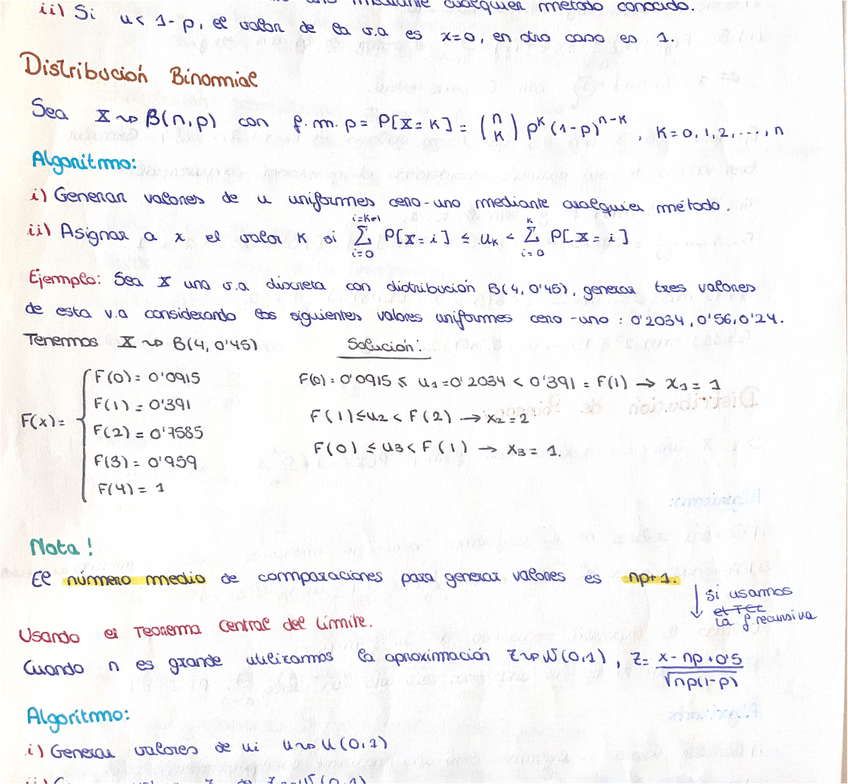 ii) Si u < 1-p, el valor de la v.a es x=0, en otro caso es 1.
Distribución Binomial
Sea X ~> B(n,p) con f.m.p = P[X=K] = (n K) p^K (1-p)^{n-K}, K=0,1,2,...,n
Algoritmo:
i) Generar valores de u uniformes cero-uno mediante cualquier método.
ii) Asignar a x el valor K si ∑_{i=0}^{i=K-1} P[X=i] ≤ u_K < ∑_{i=0}^{K} P[X=i]
Ejemplo: Sea X una v.a discreta con distribución B(4,0'45), generar tres valores
de esta v.a considerando los siguientes valores uniformes cero-uno: 0'2034, 0'56, 0'24.
Tenemos X ~> B(4,0'45)
Solución:
F(x)=
F(0)= 0'0915
F(1)= 0'391
F(2)= 0'7585
F(3)= 0'959
F(4)= 1
F(0)= 0'0915 ≤ u1=0'2034 < 0'391 = F(1) → x1= 1
F(1) ≤ u2 < F(2) → x2=2
F(0) ≤ u3 < F(1) → x3= 1.
Nota!
El número medio de commparaciones para generar valores es np+1.
↓ si usamos
el TCL
la f.recursiva
Usando el Teorema Central del Límite.
Cuando n es grande utilizamos la aproximación Z ~> N(0,1), Z= (x-np+0'5)/√(np(1-p))
Algoritmo:
i) Generar valores de ui u ~> U(0,1)